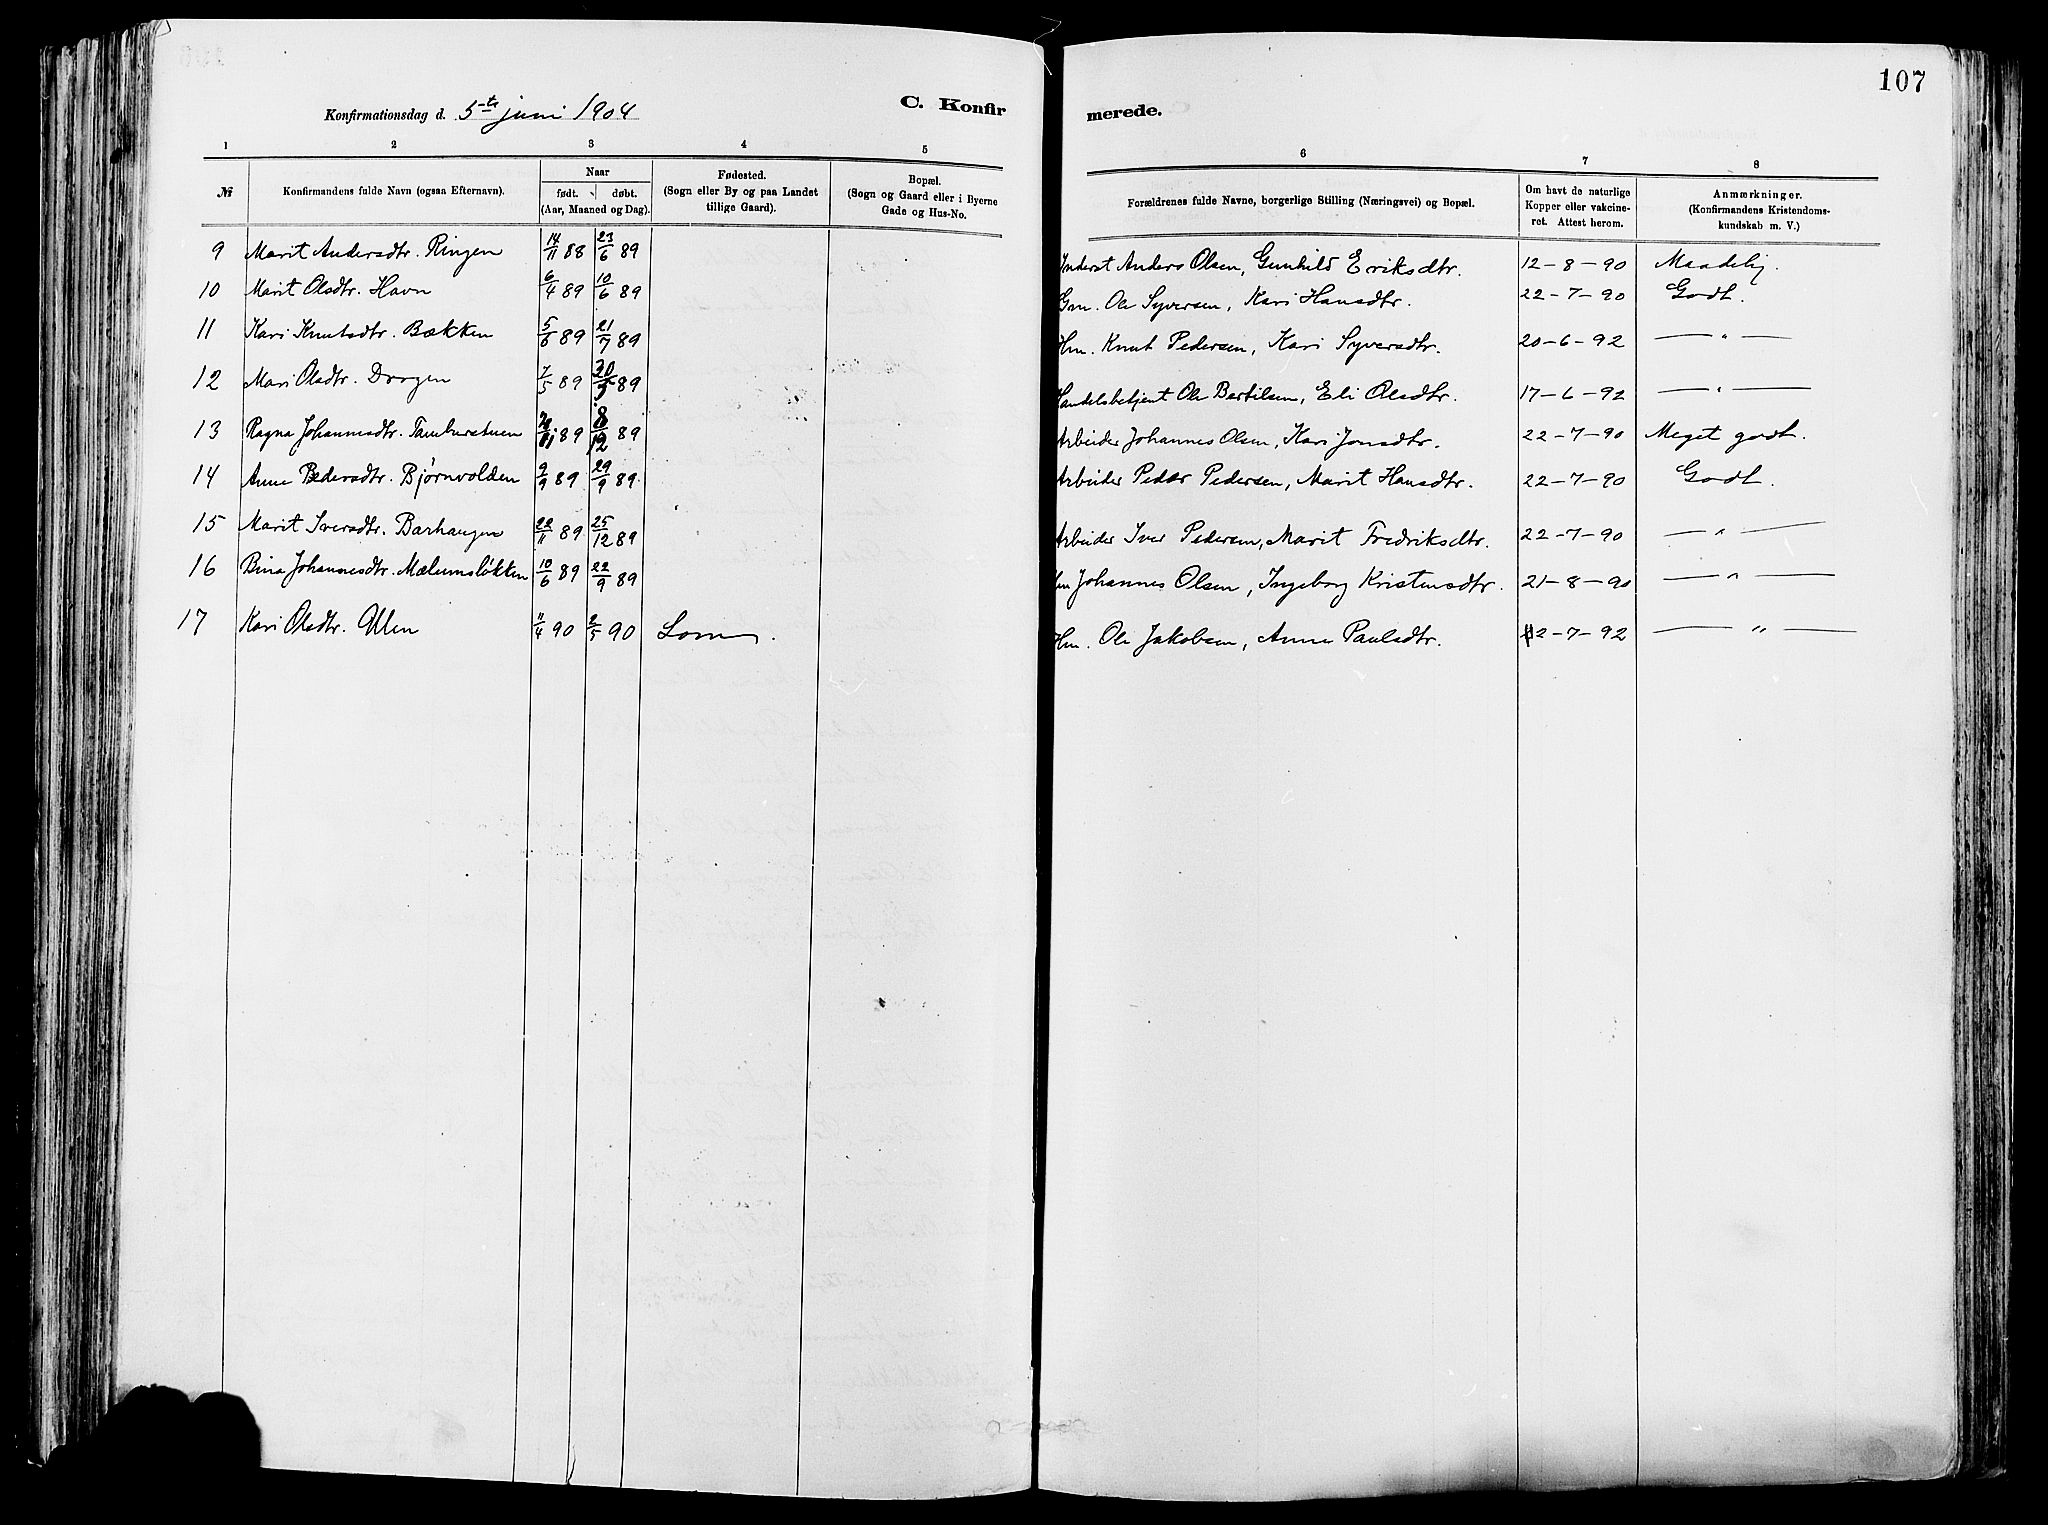 107
Konfirmationsdag d. 5te juni 1904
C. Konfirmerede.
1 2 3 4 5 6 7 8
№
Konfirmandens fulde Navn (ogsaa Efternavn).
Naar
født. døbt.
(Aar, Maaned og Dag).
Fødested.
(Sogn eller By og paa Landet
tillige Gaard).
Bopæl.
(Sogn og Gaard eller i Byerne
Gade og Hus-No.
Forældrenes fulde Navne, borgerlige Stilling (Næringsvei) og Bopæl.
Om havt de naturlige
Kopper eller vakcine-
ret. Attest herom.
Anmærkninger.
(Konfirmandens Kristendoms-
kundskab m. V.)
9 Marit Andersdtr. Ringen 14/11 88 23/6 89 Inderst Anders Olsen, Gunhild Eriksdtr. 12-8-90 Maadelig.
10 Marit Olsdtr. Havn 6/4 89 10/6 89 Gm. Ole Syversen, Kari Hansdtr. 22-7-90 Godt.
11 Kari Knutsdtr. Bækken 5/6 89 21/7 89 Hm. Knut Pedersen, Kari Syversdtr. 20-6-92 — " —
12 Mari Olsdtr. 7/5 89 89 Handelsbetjent Ole Bertilsen, Eli Olsdtr. 17-6-92 — " —
13 Ragna Johannesdtr. Tamburstuen 89 8/12 89 Arbeider Johannes Olsen, Kari Jonsdtr. 22-7-90 Meget godt.
14 Anne Pedersdtr. Bjørnvolden 9/9 89 29/9 89. Arbeider Peder Pedersen, Marit Hansdtr. 22-7-90 Godt.
15 Marit Iversdtr. Barhaugen 22/11 89 25/12 89 Arbeider Iver Pedersen, Marit Fredriksdtr. 22-7-90 — " —
16 Bina Johannesdtr. Mælumsløkken 10/6 89 22/9 89 Hm Johannes Olsen, Ingeborg Kristensdtr. 21-8-90 — " —
17 Kari Olsdtr. Ullen 11/4 90 2/5 90 Lom. Hm. Ole Jakobsen, Anne Paulsdtr. 2-7-92 — " —